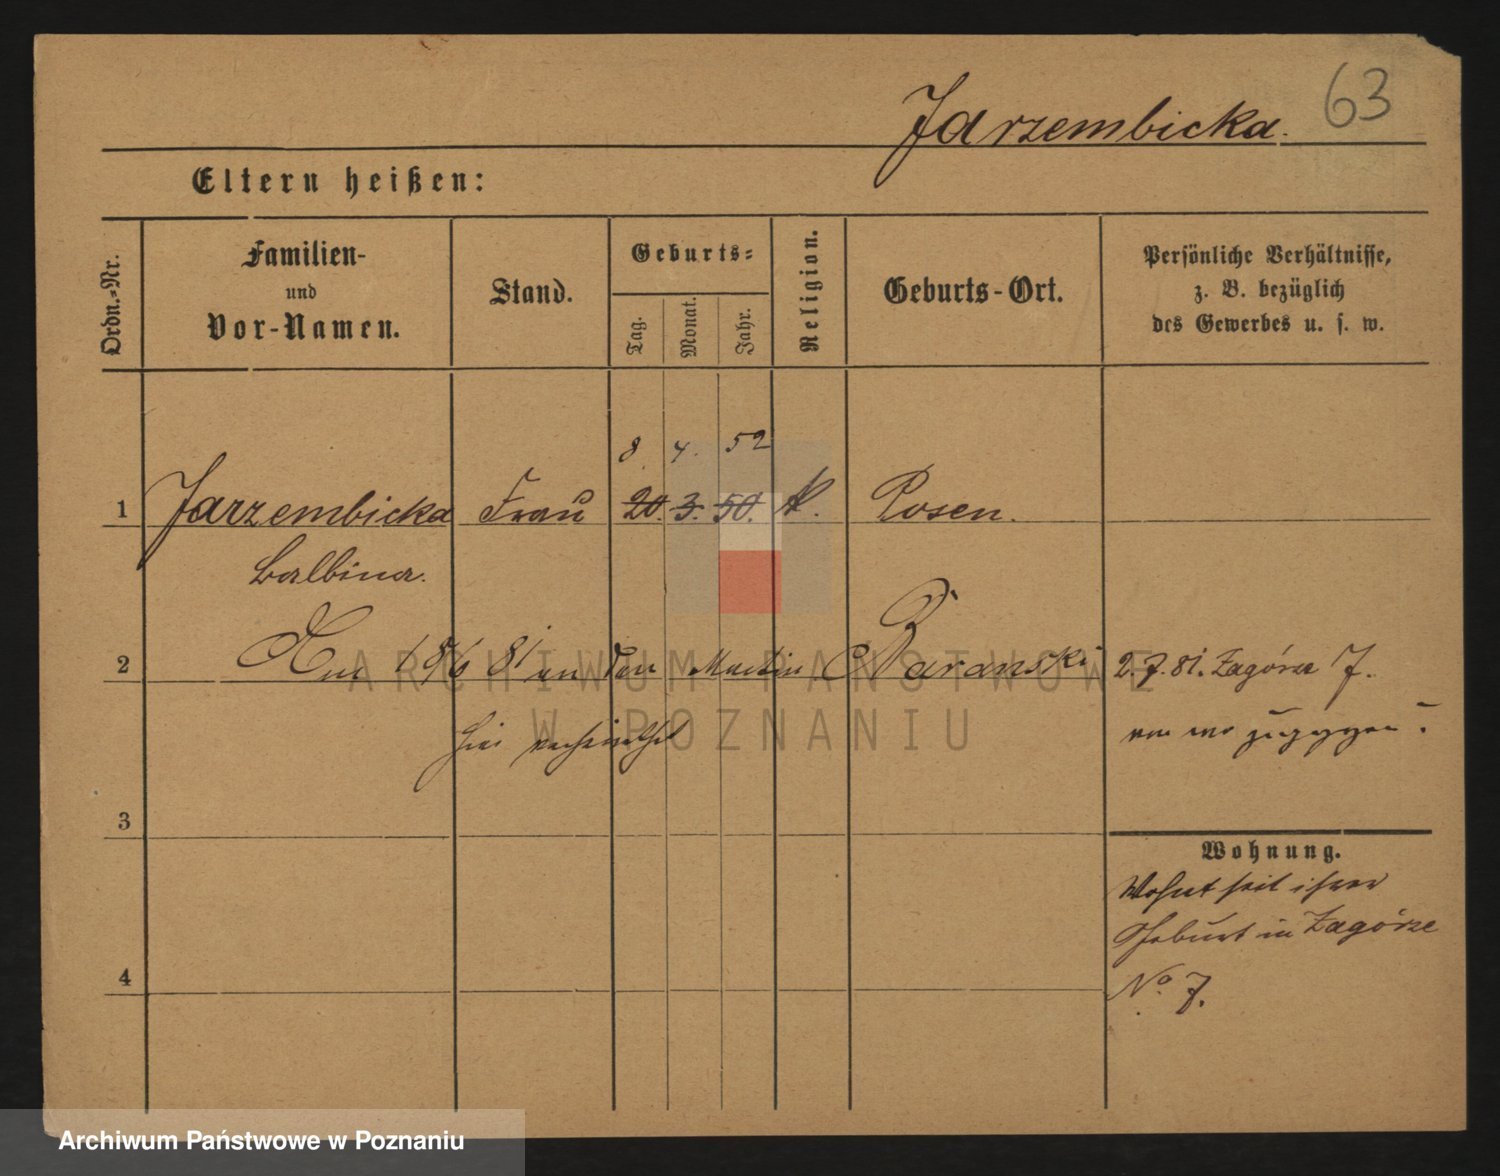 63
Jarzembicka.
Eltern heißen:
Ordn.-Nr.
Familien-
und
Vor-Namen.
Stand.
Geburts-
Tag.
Monat.
Jahr.
Religion.
Geburts-Ort.
Persönliche Verhältnisse,
z. B. bezüglich
des Gewerbes u. s. w.
8. 4. 52
1 Jarzembicka Frau 20. 3. 50. k. Posen.
Balbina.
2 81 an den Martin Baranski 2. 7. 81. Zagórze 7.
von wo zugezogen?
hier verheirathet
3
Wohnung.
Wohnt seit ihrer
Geburt in Zagórze
No 7.
4
ARCHIWUM PAŃSTWOWE
W POZNANIU
Archiwum Państwowe w Poznaniu